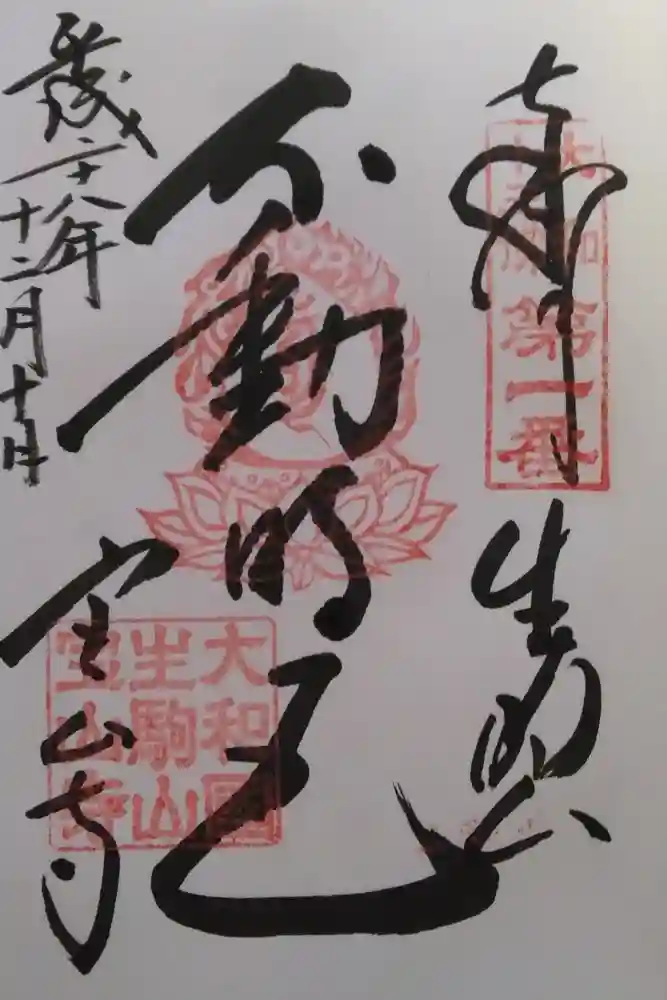 奉拝
大和十三佛
第一番
生駒山
不動明王
大和國
生駒山
宝山寺
宝山寺
二十八年
十二月十一日